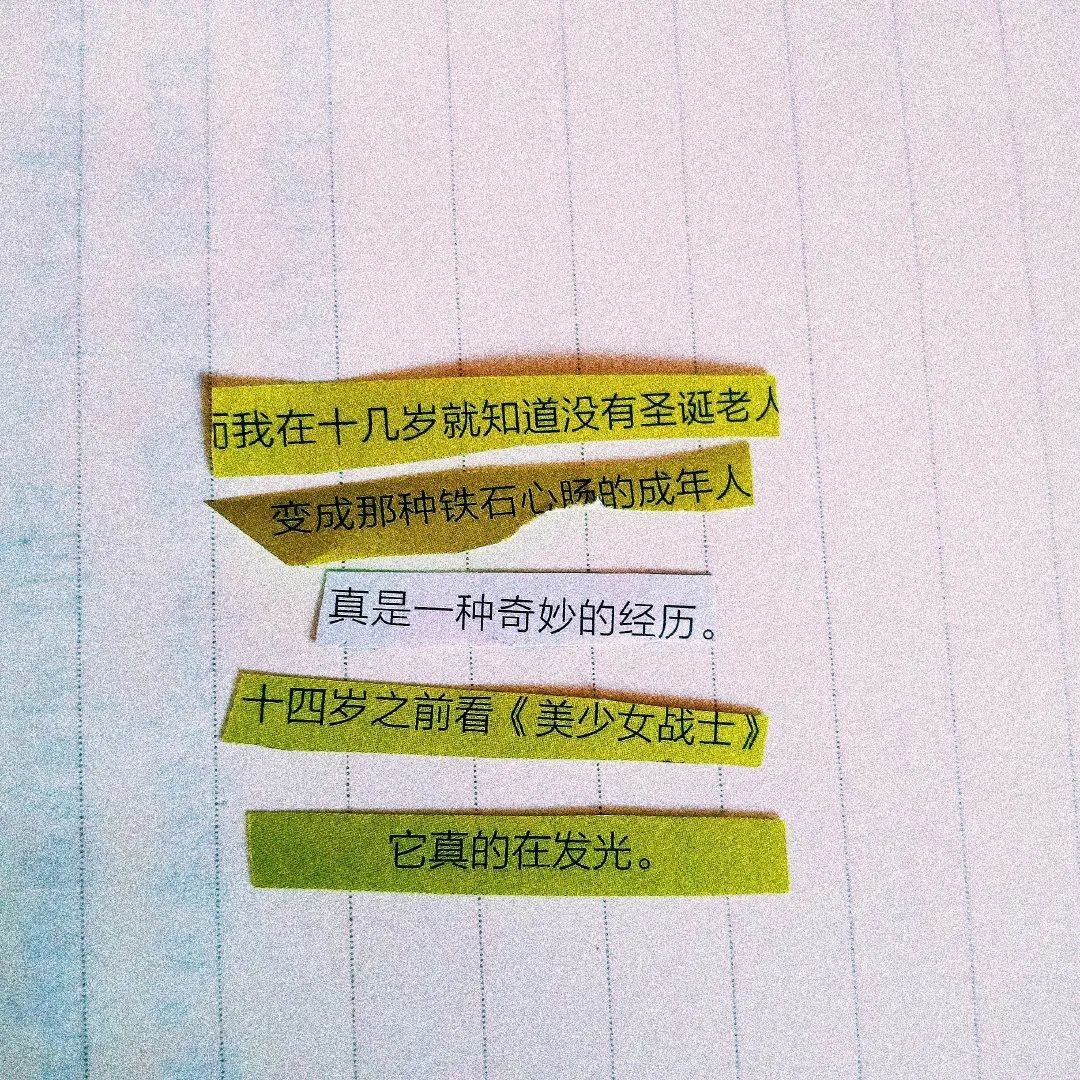 而我在十几岁就知道没有圣诞老人
变成那种铁石心肠的成年人
真是一种奇妙的经历。
十四岁之前看《美少女战士》
它真的在发光。